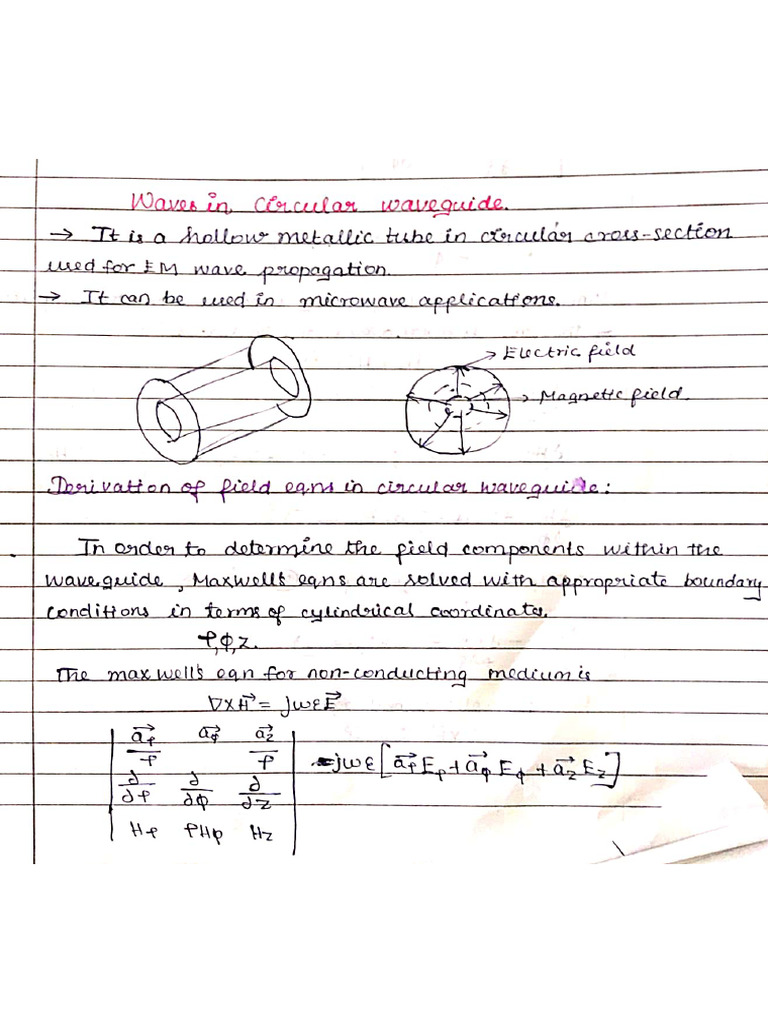 Waves in Circular waveguide.
→ It is a hollow metallic tube in circular cross-section
used for EM wave propagation.
→ It can be used in microwave applications.
→ Electric field
→ Magnetic field.
Derivation of field eqns in circular waveguide:
In order to determine the field components within the
waveguide, Maxwell's eqns are solved with appropriate boundary
conditions in terms of cylindrical coordinates.
ρ,ϕ,z.
The maxwell's eqn for non-conducting medium is
∇×H⃗ = jωε E⃗
| a⃗ρ/ρ a⃗ϕ a⃗z/ρ |
| ∂/∂ρ ∂/∂ϕ ∂/∂z | = jωε [a⃗ρ Eρ + a⃗ϕ Eϕ + a⃗z Ez]
| Hρ ρHϕ Hz |